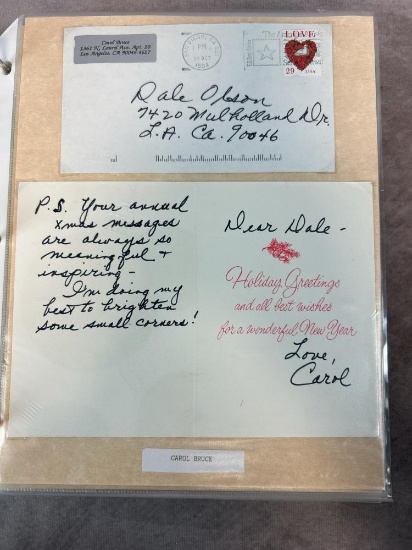 Carol Bruce
1361 N. Laurel Ave, Apt. 20
Los Angeles, CA 90046-4627
PM
1994
LOVE
29 USA
Dale Olson
7420 Mulholland Dr.
L.A. Ca. 90046
P.S. Your annual
xmas messages
are always so
meaningful &
inspiring -
I'm doing my
best to brighten
some small corners!
Dear Dale -
Holiday Greetings
and all best wishes
for a wonderful New Year
Love,
Carol
CAROL BRUCE